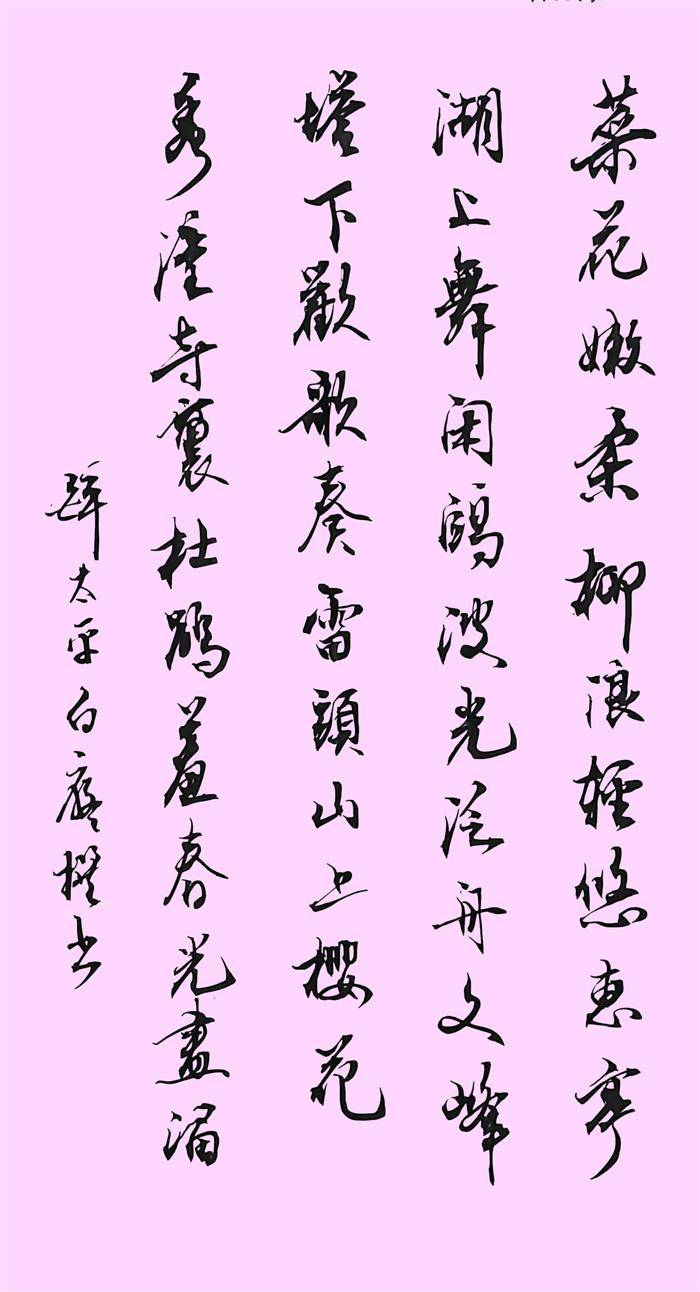 菜花嫩柔柳浪輕悠惠亭
湖上舞闲鷗波光泛舟文峰
塔下歡歌奏雷頭山上櫻花
秀寺裏杜鵑羞春光畫湄
太平白撰书